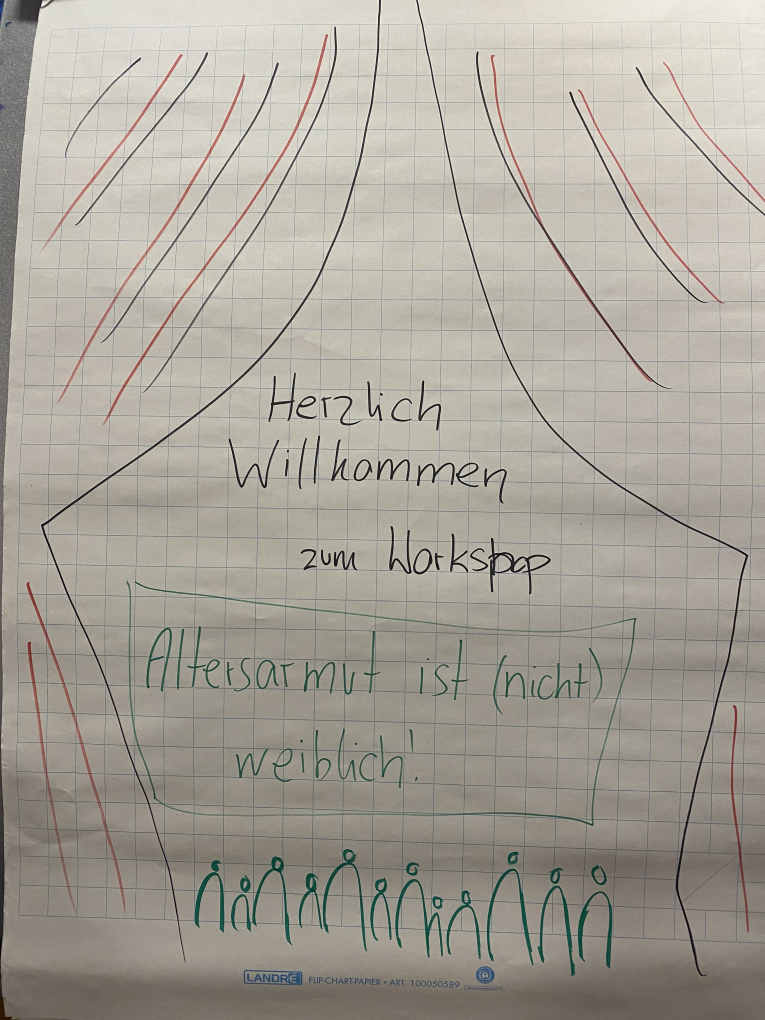 Herzlich
Willkommen
zum Workspop
Altersarmut ist (nicht)
weiblich!
LANDRÉ FLIP-CHART-PAPIER • ART. 100050589